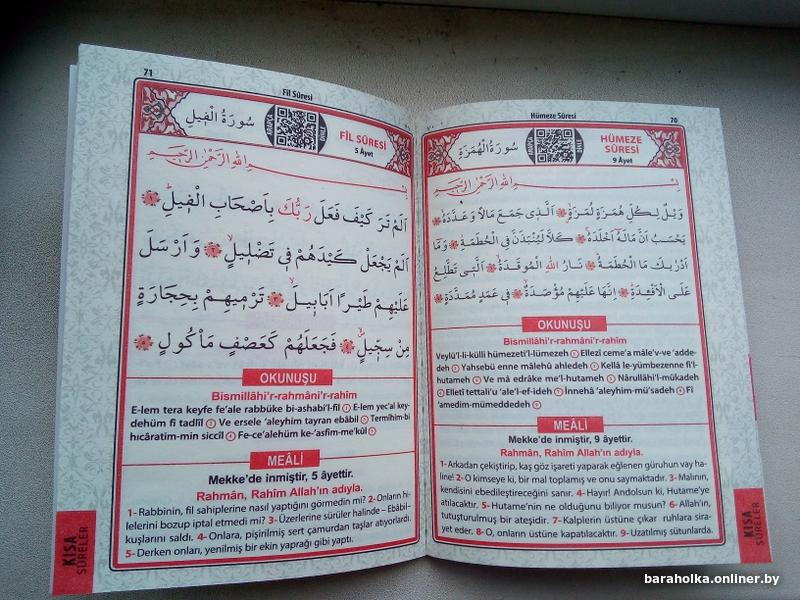 71
Fîl Sûresi
سُورَةُ الْفِيلِ
FÎL SÛRESİ
5 Âyet
بِسْمِ اللّٰهِ الرَّحْمٰنِ الرَّحِيمِ
اَلَمْ تَرَ كَيْفَ فَعَلَ رَبُّكَ بِاَصْحَابِ الْفِيلِ ﴿١﴾
اَلَمْ يَجْعَلْ كَيْدَهُمْ فِي تَضْلِيلٍ ﴿٢﴾ وَاَرْسَلَ
عَلَيْهِمْ طَيْرًا اَبَابِيلَ ﴿٣﴾ تَرْمِيهِمْ بِحِجَارَةٍ
مِنْ سِجِّيلٍ ﴿٤﴾ فَجَعَلَهُمْ كَعَصْفٍ مَأْكُولٍ ﴿٥﴾
OKUNUŞU
Bismillâhi'r-rahmâni'r-rahîm
E-lem tera keyfe fe'ale rabbüke bi-ashabi'l-fîl ① E-lem yec'al key-
dehüm fî tadlîl ② Ve ersele 'aleyhim tayran ebâbîl ③ Termîhim-bi
hıcâratim-min siccîl ④ Fe-ce'alehüm ke-'asfim-me'kûl ⑤
MEÂLİ
Mekke'de inmiştir, 5 âyettir.
Rahmân, Rahîm Allah'ın adıyla.
1- Rabbinin, fil sahiplerine nasıl yaptığını görmedin mi? 2- Onların hi-
lelerini bozup iptal etmedi mi? 3- Üzerlerine sürüler halinde – Ebâbil–
kuşlarını saldı. 4- Onlara, pişirilmiş sert çamurdan taşlar atıyorlardı.
5- Derken onları, yenilmiş bir ekin yaprağı gibi yaptı.
KISA
SÛRELER
Hümeze Sûresi
70
سُورَةُ الْهُمَزَةِ
HÜMEZE
SÛRESİ
9 Âyet
بِسْمِ اللّٰهِ الرَّحْمٰنِ الرَّحِيمِ
وَيْلٌ لِكُلِّ هُمَزَةٍ لُمَزَةٍ ﴿١﴾ اَلَّذِي جَمَعَ مَالًا وَعَدَّدَهُ ﴿٢﴾
يَحْسَبُ اَنَّ مَالَهُ اَخْلَدَهُ ﴿٣﴾ كَلَّا لَيُنْبَذَنَّ فِي الْحُطَمَةِ ﴿٤﴾ وَمَا
اَدْرٰيكَ مَا الْحُطَمَةُ ﴿٥﴾ نَارُ اللّٰهِ الْمُوقَدَةُ ﴿٦﴾ اَلَّتِي تَطَّلِعُ
عَلَى الْاَفْئِدَةِ ﴿٧﴾ اِنَّهَا عَلَيْهِمْ مُؤْصَدَةٌ ﴿٨﴾ فِي عَمَدٍ مُمَدَّدَةٍ ﴿٩﴾
OKUNUŞU
Bismillâhi'r-rahmâni'r-rahîm
Veylü'l-li-külli hümezeti'l-lümezeh ① Ellezî ceme'a mâle'v-ve 'adde-
deh ② Yahsebü enne mâlehû ahledeh ③ Kellâ le-yümbezenne fi'l-
hutameh ④ Ve mâ edrâke me'l-hutameh ⑤ Nârullâhi'l-mûkadeh
⑥ Elletî tettali'u 'ale'l-ef-ideh ⑦ İnnehâ 'aleyhim-mü'sadeh ⑧ Fî
'amedim-mümeddedeh ⑨
MEÂLİ
Mekke'de inmiştir, 9 âyettir.
Rahmân, Rahîm Allah'ın adıyla.
1- Arkadan çekiştirip, kaş göz işareti yaparak eğlenen güruhun vay ha-
line! 2- O kimseye ki, bir mal toplamış ve onu saymaktadır. 3- Malının,
kendisini ebedileştireceğini sanır. 4- Hayır! Andolsun ki, Hutame'ye
atılacaktır. 5- Hutame'nin ne olduğunu biliyor musun? 6- Allah'ın,
tutuşturulmuş bir ateşidir. 7- Kalplerin üstüne çıkar ruhlara sira-
yet eder. 8- O, onların üstüne kapatılacaktır. 9- Uzatılmış sütunlarda.
KISA
SÛRELER
baraholka.onliner.by